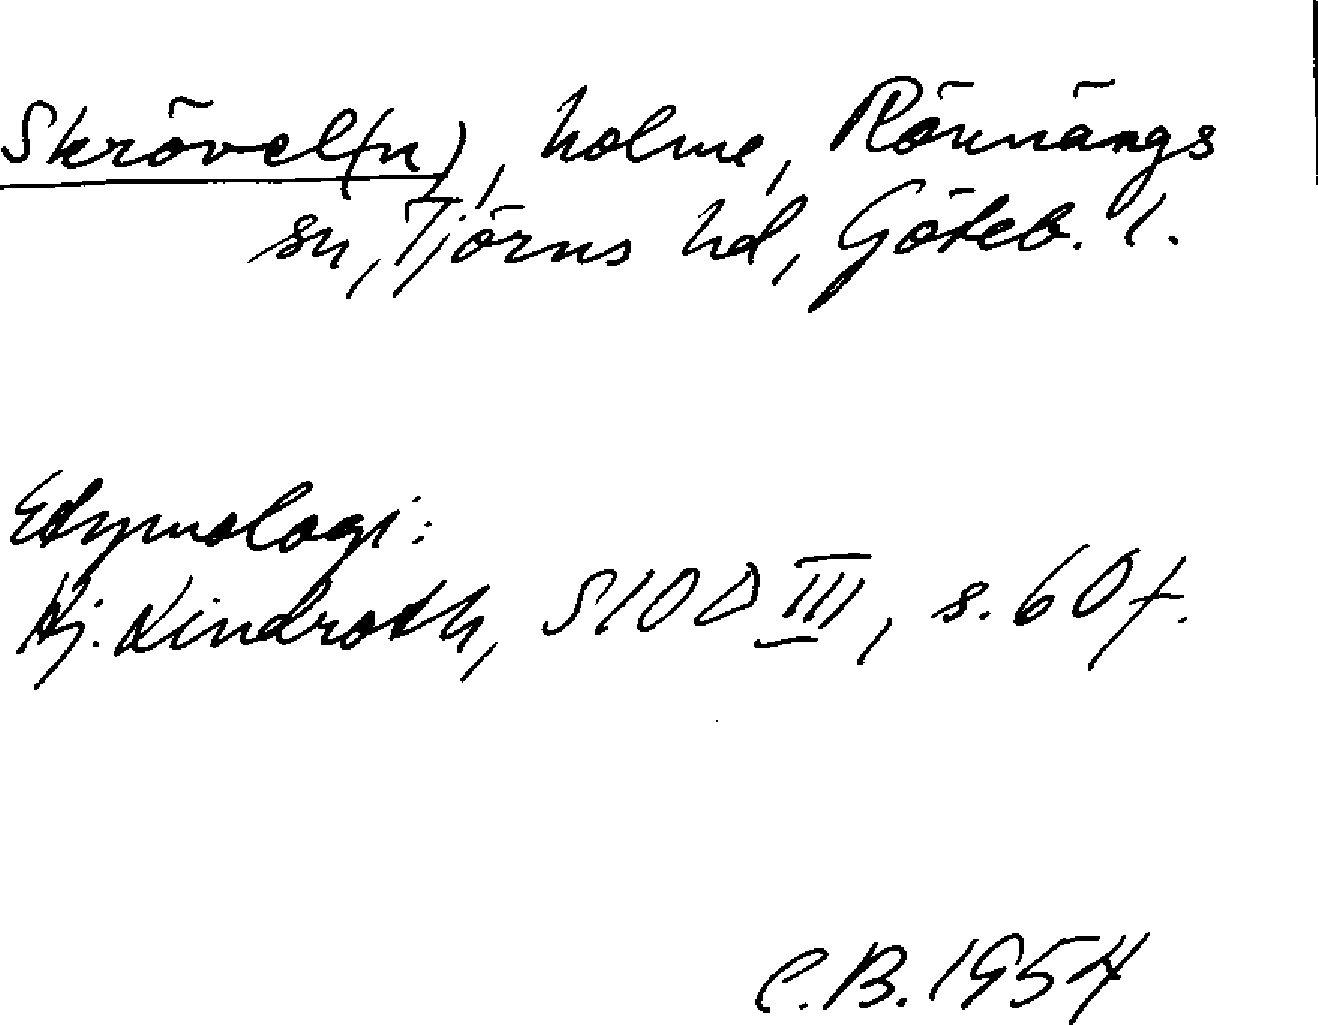 Skrövel(n), holme, Rönnängs
sn, Tjörns hd, Göteb. l.
Etymologi:
Hj. Lindroth, SIOD III, s. 60 f.
C.B. 1954